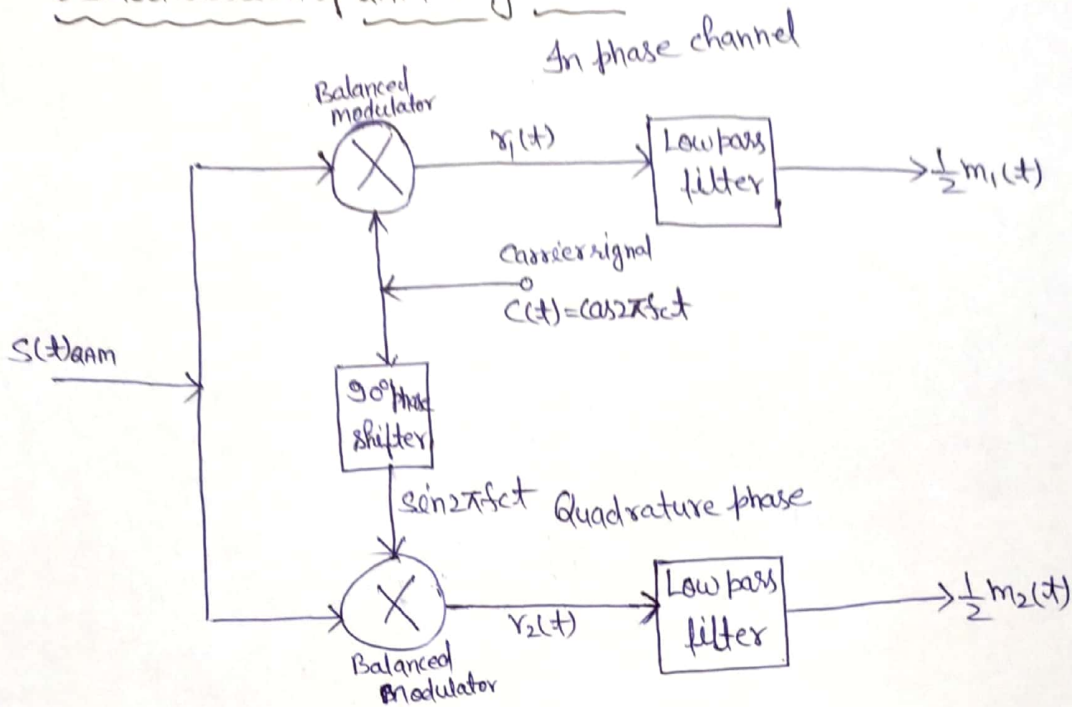 In phase channel
Balanced
modulator
r₁(t)
Low pass
filter
½ m₁(t)
Carrier signal
C(t)=Cos2πfct
S(t)QAM
90° phase
shifter
sin2πfct
Quadrature phase
Low pass
filter
½ m₂(t)
r₂(t)
Balanced
modulator